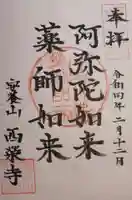 奉拝
令和四年 二月十二日
阿弥陀如来
薬師如来
安養山 西蓮寺